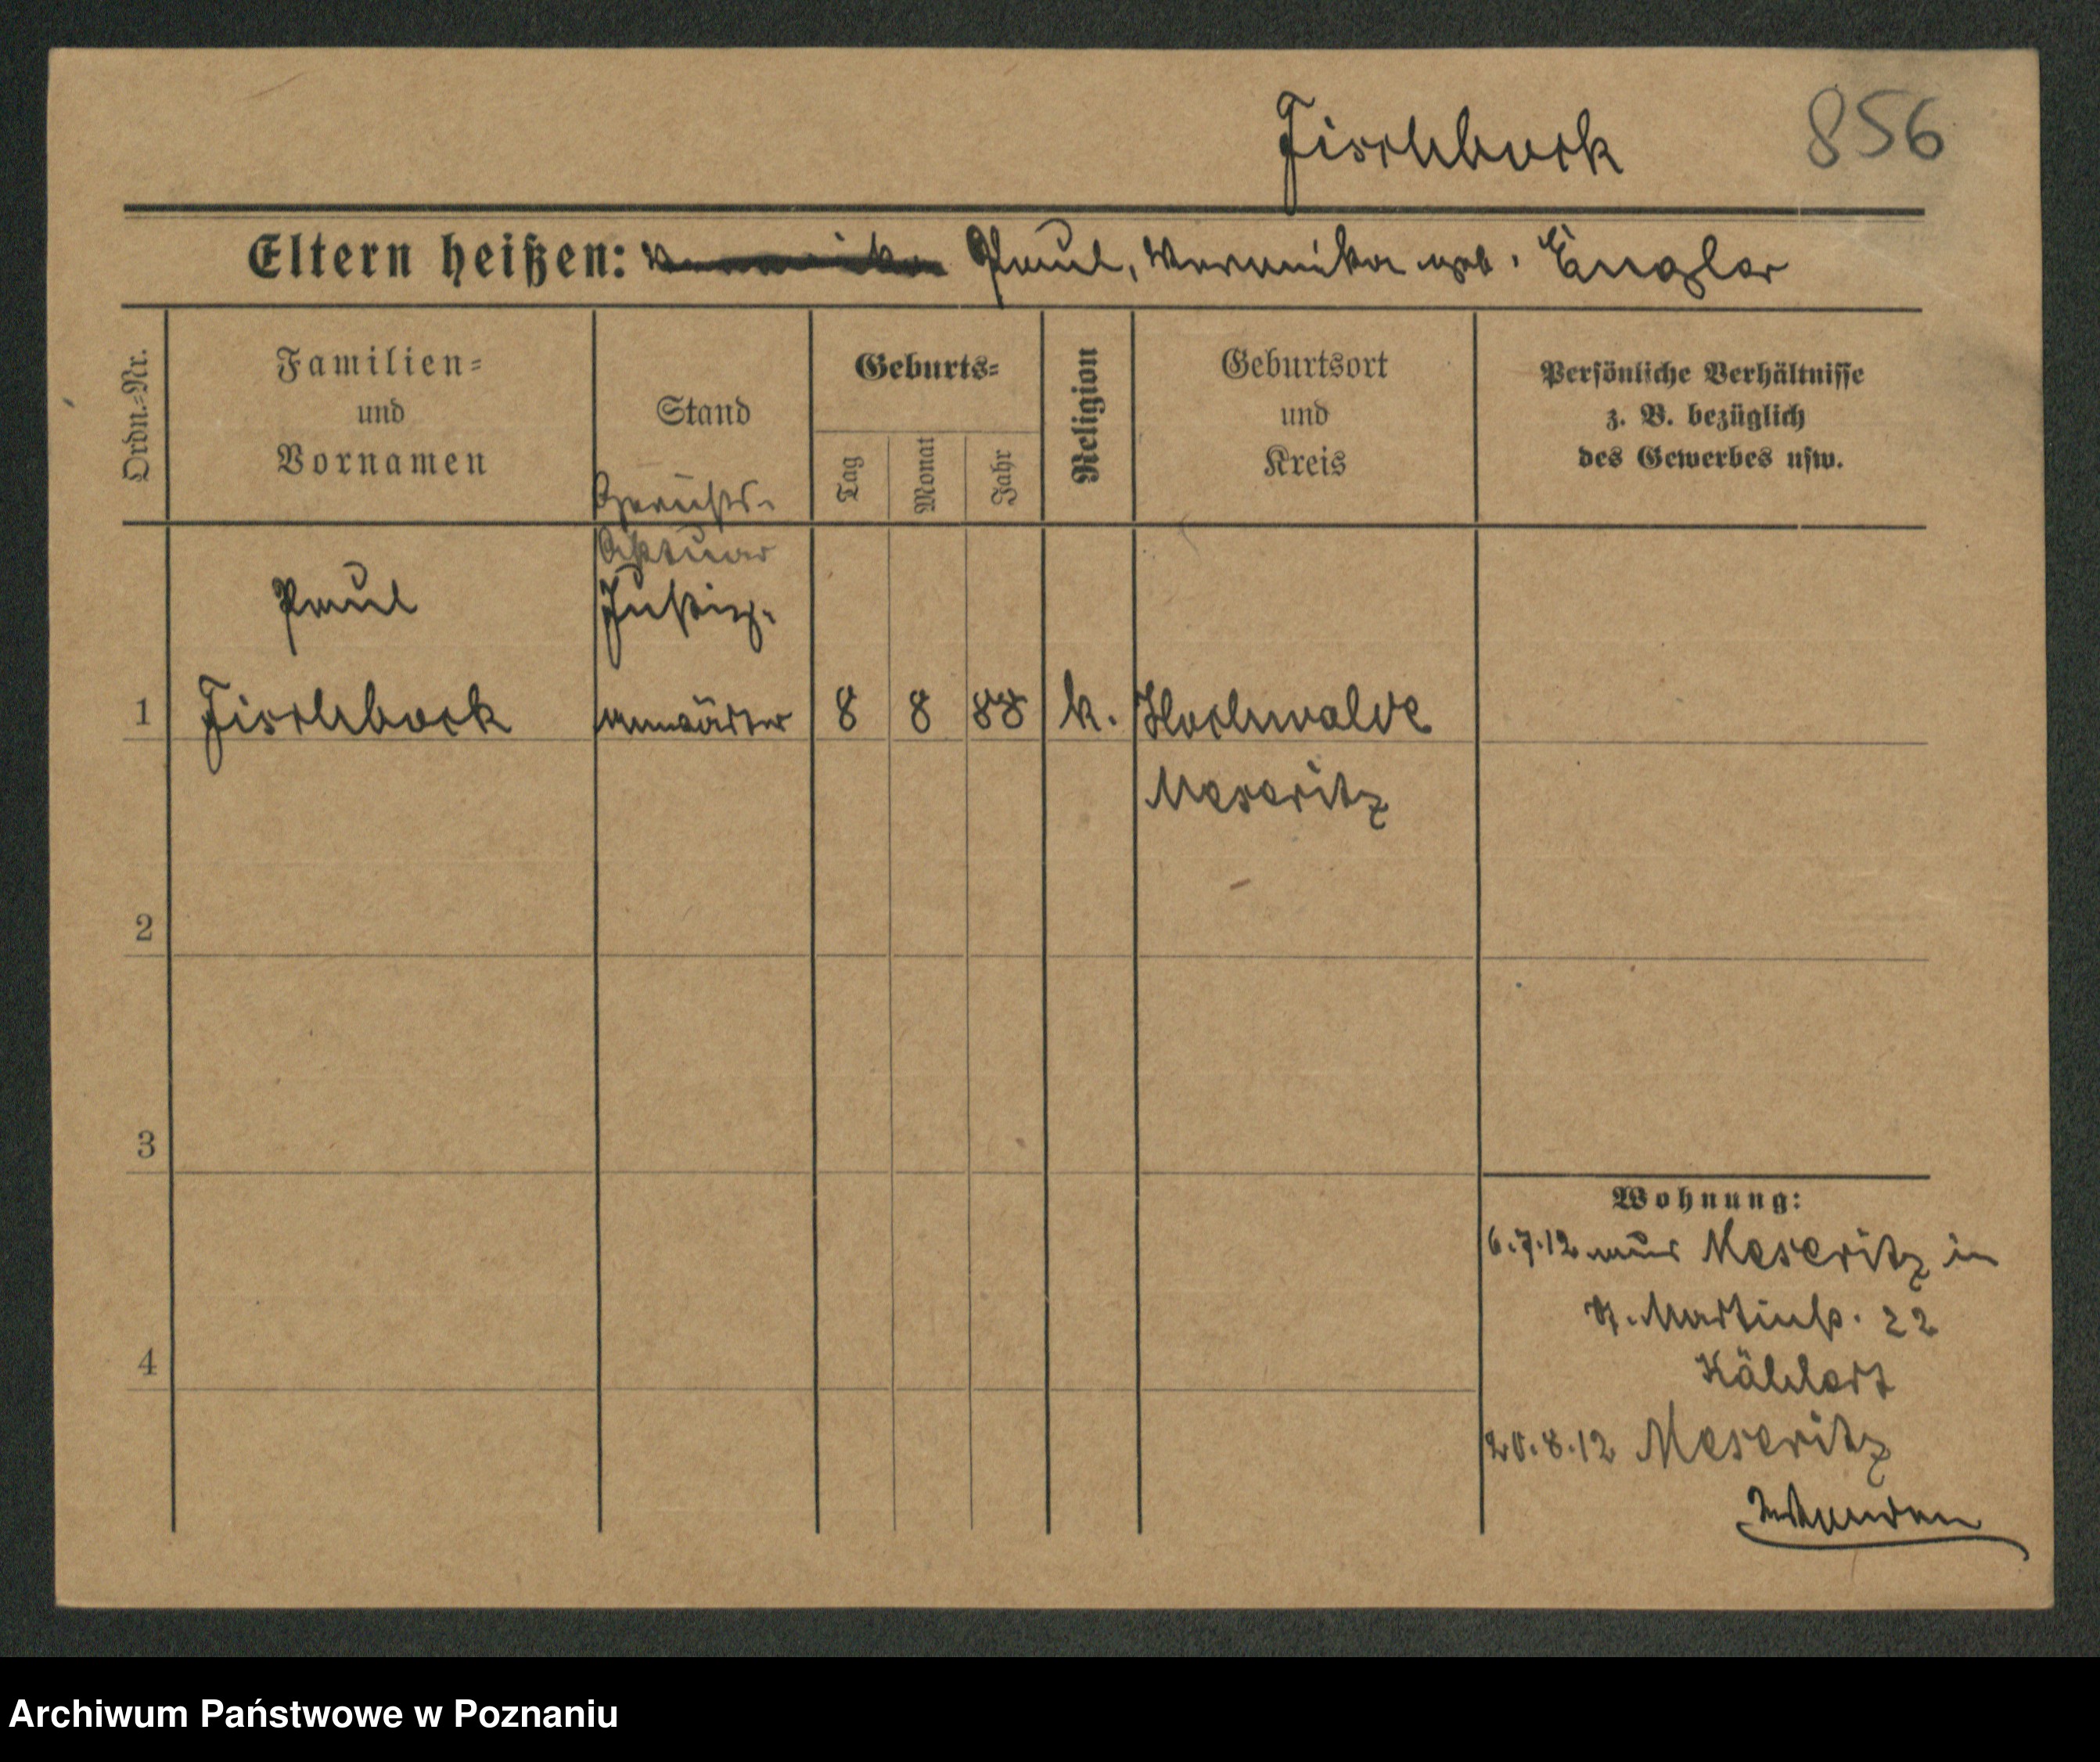 Fischbock 856
Eltern heißen: Paul, Veronika geb. Engler
Ordn.=Nr.
Familien=
und
Vornamen
Stand
Geburts=
Tag
Monat
Jahr
Religion
Geburtsort
und
Kreis
Persönliche Verhältnisse
z. B. bezüglich
des Gewerbes usw.
Gerichts-
Aktuar
Paul Justiz-
1 Fischbock anwärter 8 8 88 k. Hochwalde
Meseritz
2
3
4
Wohnung:
6.7.12 aus Meseritz in
St. Martinstr. 22
20.8.12 Meseritz
Archiwum Państwowe w Poznaniu